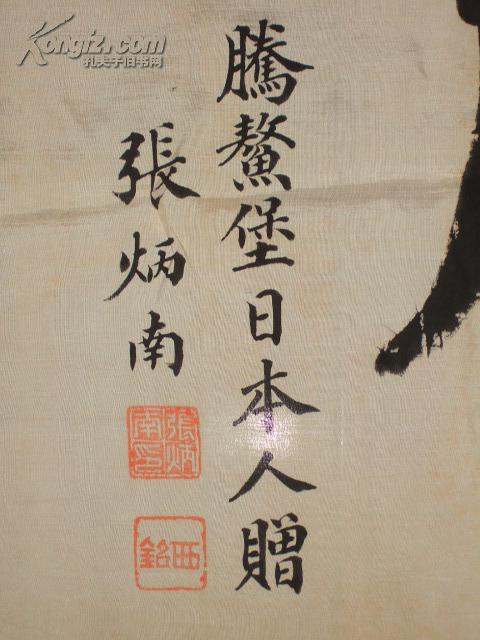 Kongfz.com
孔夫子旧书网
騰鰲堡日本人贈
張炳南
張炳南印
西銘